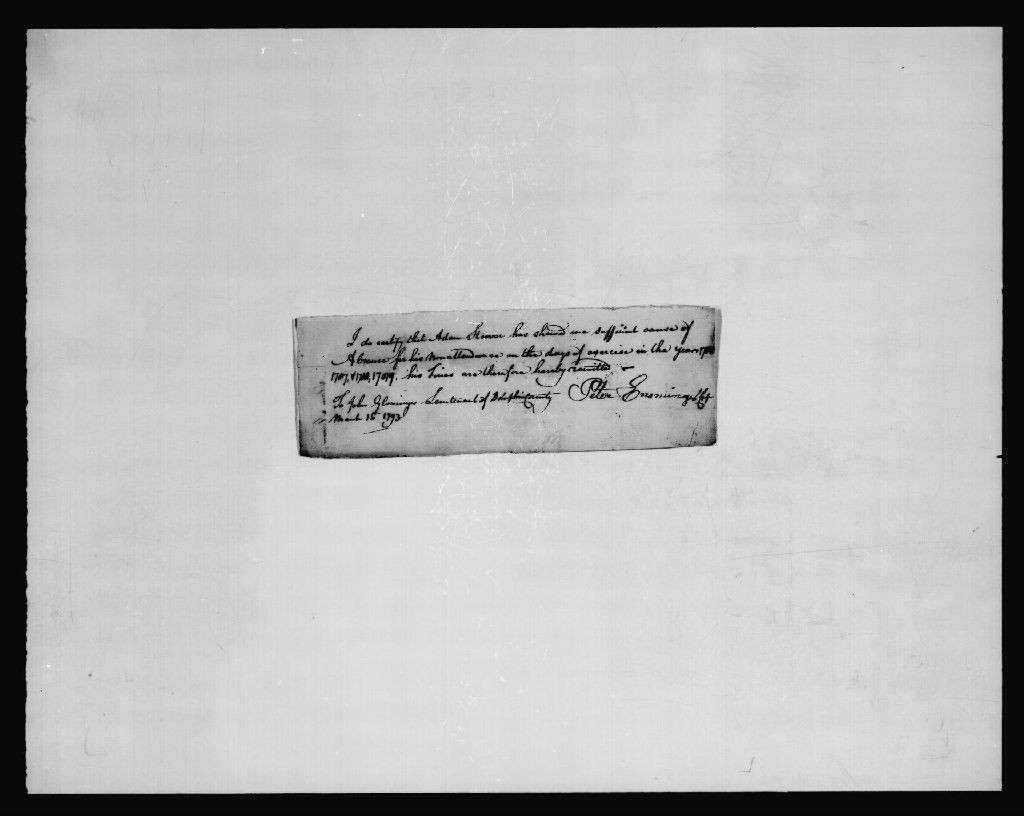 I do certify that Adam Stover has shewd me sufficient cause of
Absence for his Nonattendance on the days of exercise in the years
1787, 1788, 1789. his Fines are therefore hereby remitted
To John Gloninger Lieutenant of Dauphin County Peter Ensminger Cap
March 1st 1793